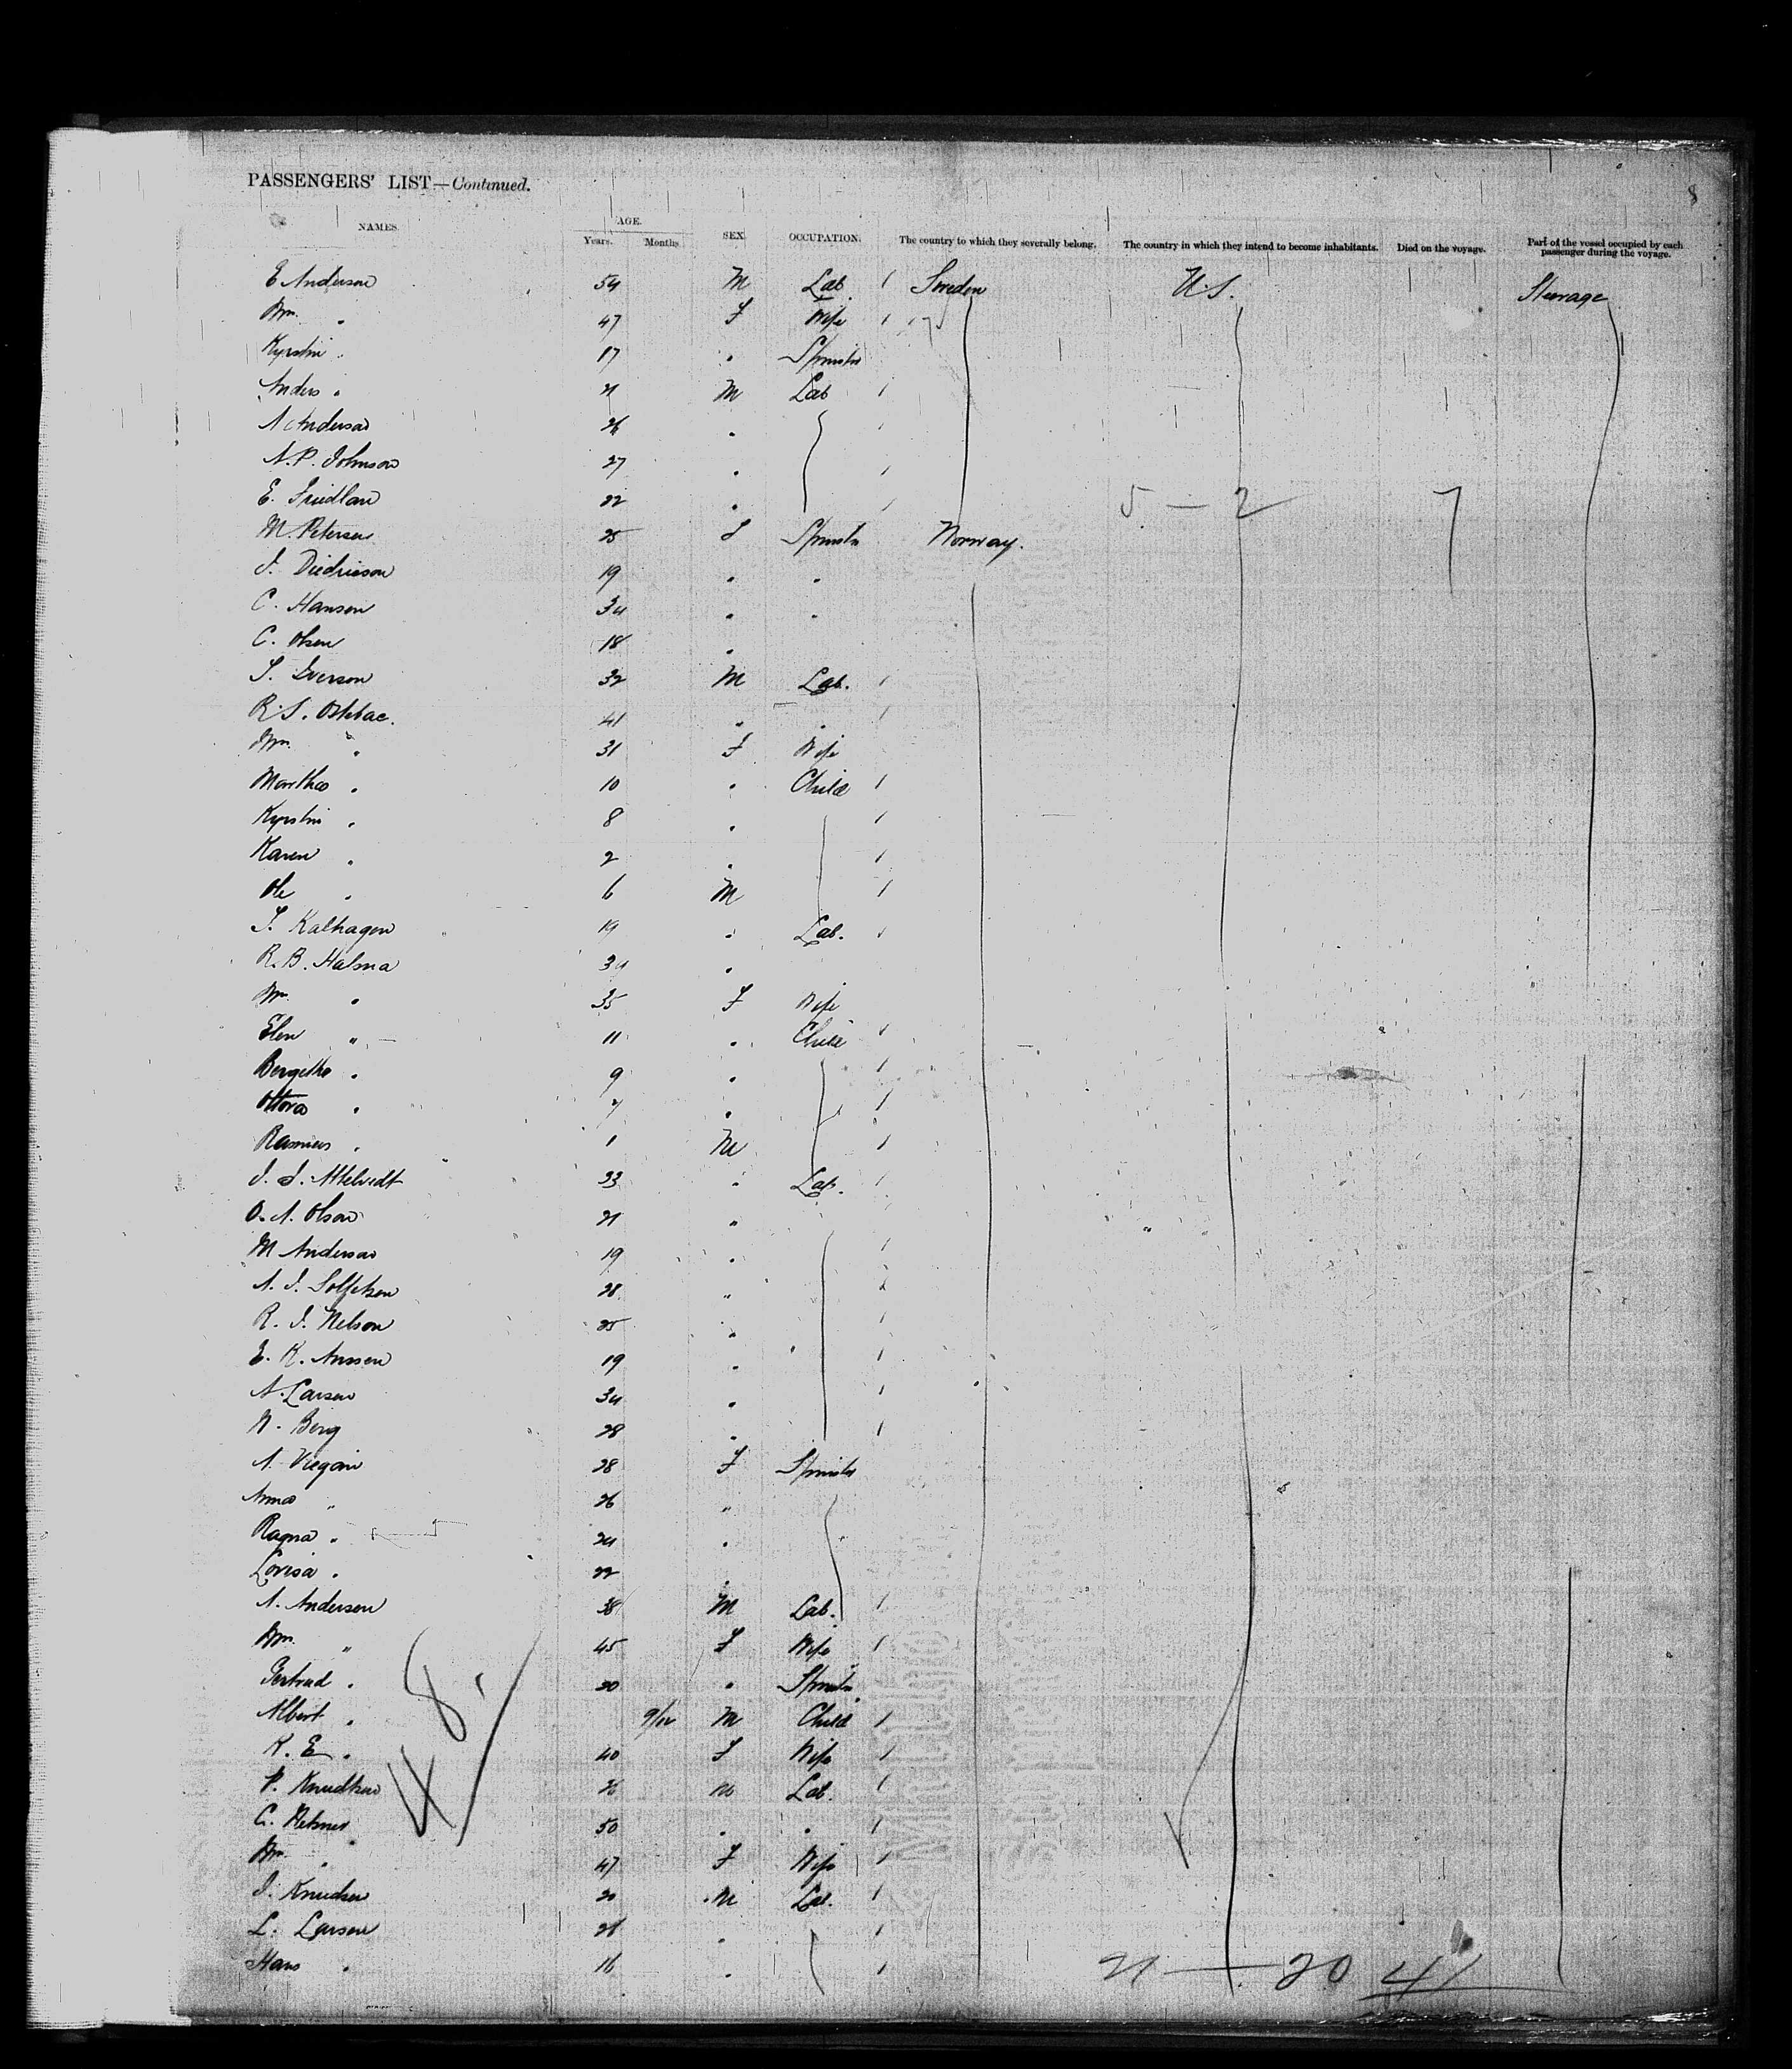 PASSENGERS' LIST—Continued.
8
NAMES. AGE. Years. Months. SEX. OCCUPATION. The country to which they severally belong. The country in which they intend to become inhabitants. Died on the voyage. Part of the vessel occupied by each passenger during the voyage.
E Anderson 54 M Lab 1 Sweden U.S. Steerage
" 47 F Wife 1
Kyrstin " 17 " Spinster
Anders " 21 M Lab 1
A Anderson 26 "
N.P. Johnson 27 "
E. 22 " 5 — 2 7
M. Petersen 25 F Spinster Norway.
J. 19 " "
C. Hanson 34 " "
C. Olsen 18 "
S. Iverson 32 M Lab. 1
R.S. 41 " "
" 31 F Wife
Martha " 10 " Child 1
Kyrstin " 8 " 1
Karen " 2 " 1
Ole " 6 M 1
T. Kalhagen 19 " Lab.
R.B. Halsna 34 "
" 35 F Wife
Elen " 11 " Child 1
Bergitha " 9 " 1
" 7 " 1
Rasmus " 1 M 1
33 " Lab. 1
O. A. Olson 21 "
M Anderson 19 " 1
28 "
R. J. Nelson 25 " 1
E. K. 19 " 1
A. Larsen 34 " 1
N. Berg 28 " 1
A. 28 F Spinster
Anna " 26 "
Ragna " 24 "
Lovisa " 22 "
A. Andersen 38 M Lab. 1
" 45 F Wife 1
Gertrud " 20 " Spinster
Albert " 9/12 M Child 1
K. E " 40 F Wife 1
P. Knudtsen 26 M Lab. 1
C. 50 " " 1
" 47 F Wife 1
J. Knudsen 20 M Lab. 1
L. Larsen 28 " 1
Hans " 16 " 1 21 — 20 41
48